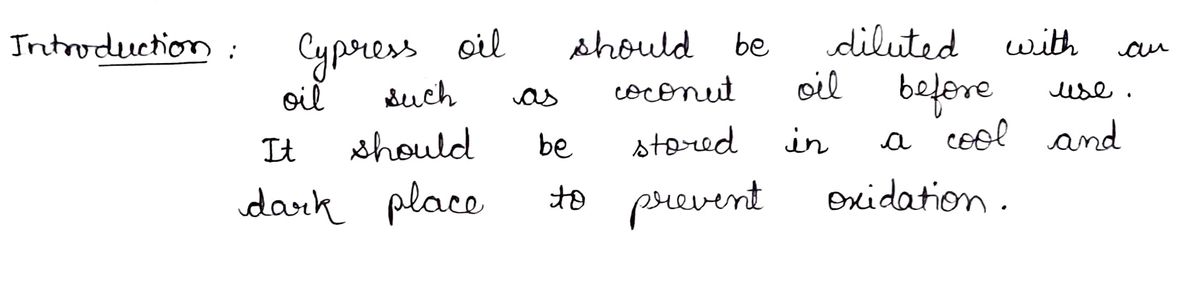 Introduction : Cypress oil should be diluted with an
oil such as coconut oil before use.
It should be stored in a cool and
dark place to prevent oxidation.